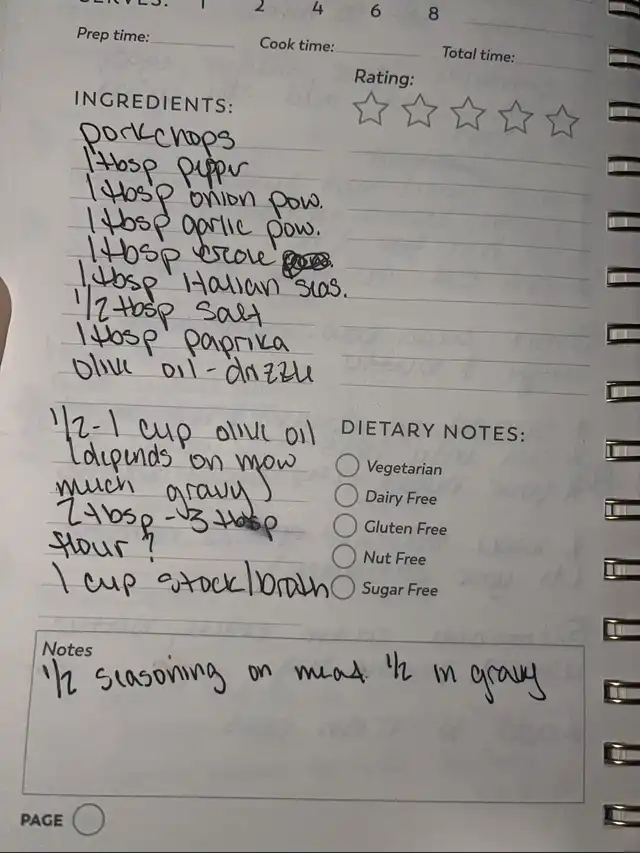 SERVES: 1 2 4 6 8
Prep time: Cook time: Total time:
Rating:
INGREDIENTS:
porkchops
1 tbsp pepper
1 tbsp onion pow.
1 tbsp garlic pow.
1 tbsp creole
1 tbsp Italian seas.
1/2 tbsp salt
1 tbsp paprika
olive oil - drizzle
1/2 - 1 cup olive oil
(depends on how
much gravy)
2 tbsp - 3 tbsp
flour?
1 cup stock/broth
DIETARY NOTES:
Vegetarian
Dairy Free
Gluten Free
Nut Free
Sugar Free
Notes
1/2 seasoning on meat. 1/2 in gravy
PAGE